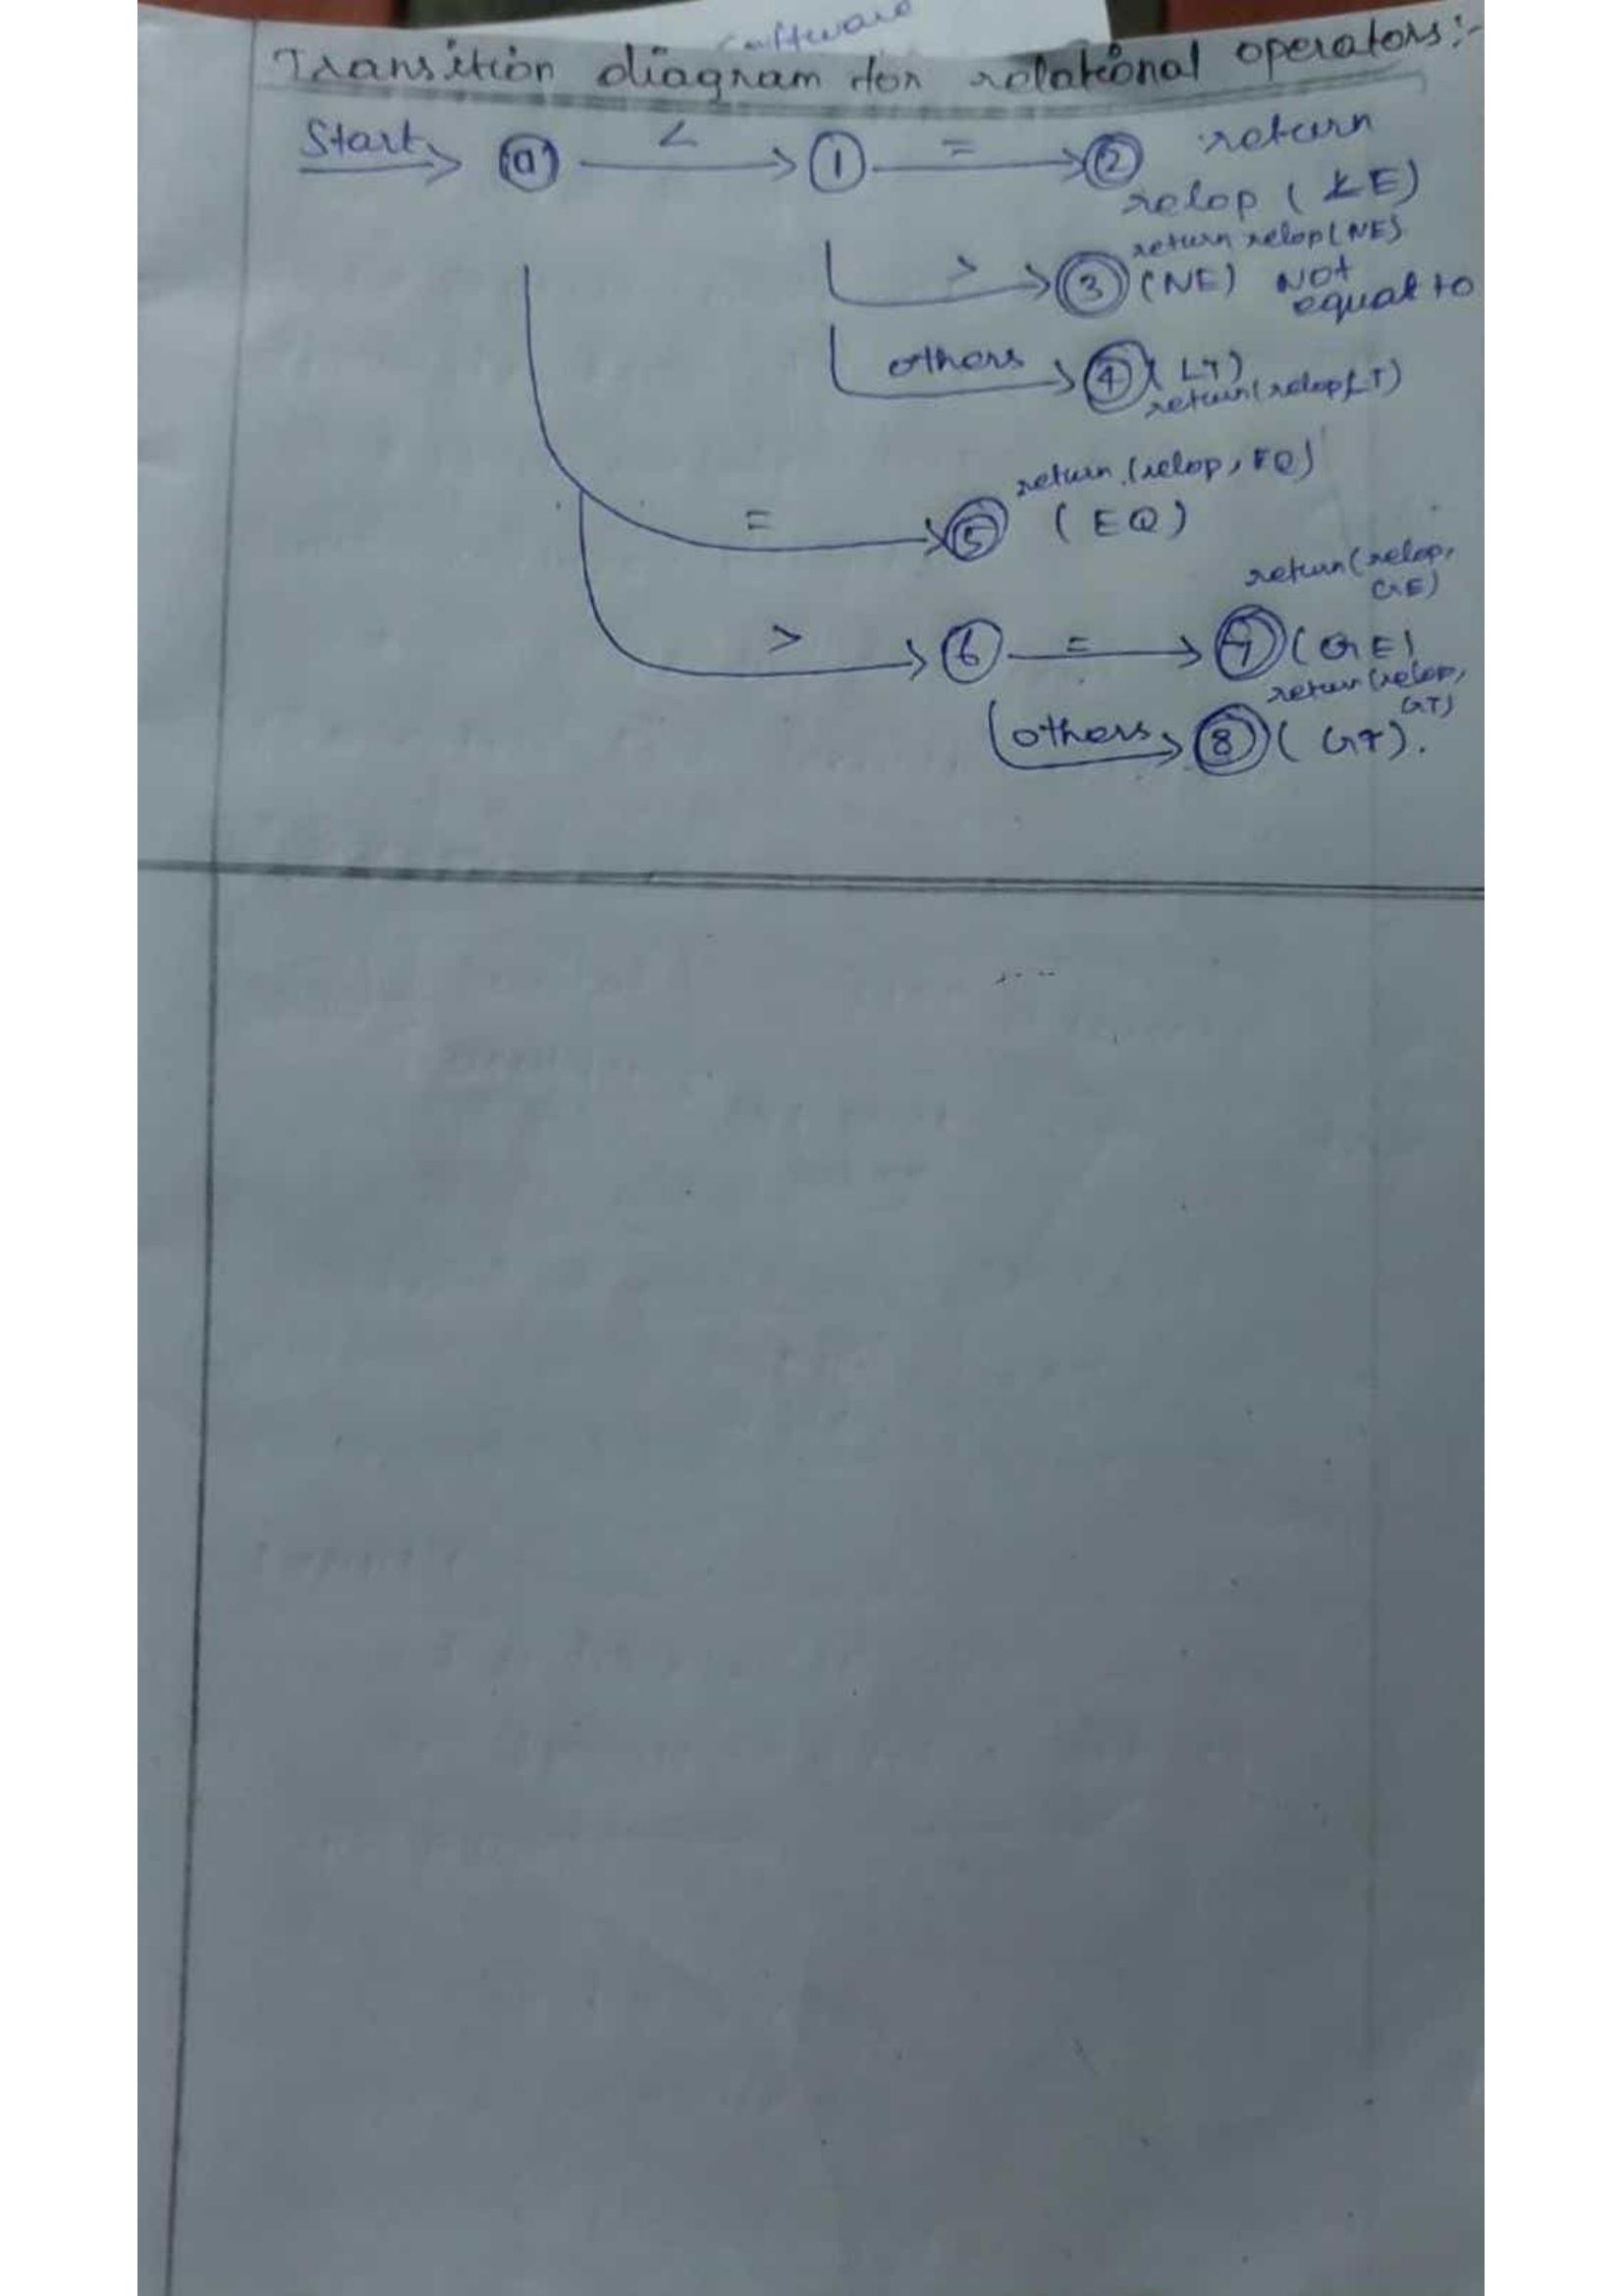 software
Transition diagram for relational operators:-
Start 0 < 1 = 2 return
relop (LE)
return relop (NE)
> 3 (NE) Not
equal to
others 4 (LT)
return (relop, LT)
return (relop, EQ)
= 5 (EQ)
return (relop,
GE)
> 6 = 7 (GE)
return (relop,
GT)
others 8 (GT).